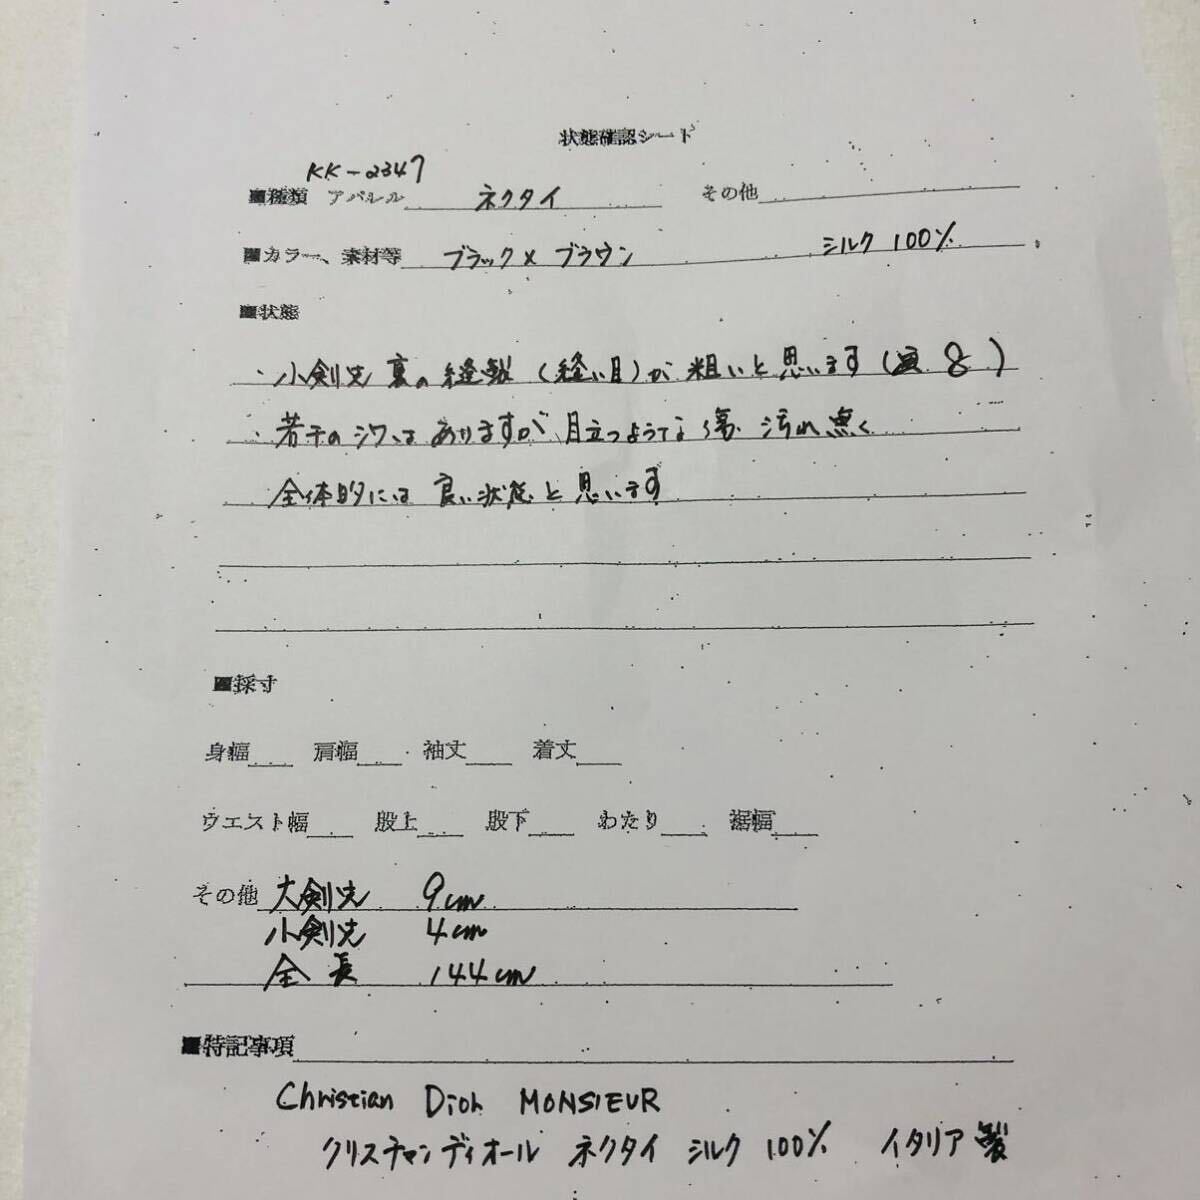 状態確認シート
KK-2347
■種類 アパレル ネクタイ その他
■カラー、素材等 ブラック×ブラウン シルク 100%
■状態
・小剣先 裏の縫製 (縫い目)が 粗いと思います( 8 )
・若干のシワは ありますが 目立つような 傷 汚れ 無く
全体的には 良い状態と 思います
■採寸
身幅 肩幅 袖丈 着丈
ウエスト幅 股上 股下 わたり 裾幅
その他 大剣先 9cm
小剣先 4cm
全長 144cm
■特記事項
Christian Dior MONSIEUR
クリスチャンディオール ネクタイ シルク 100% イタリア製